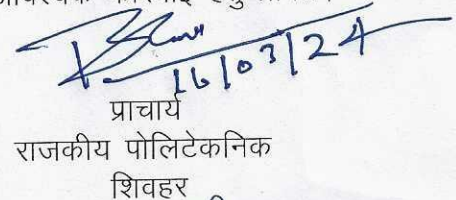 आवश्यक
16/03/24
प्राचार्य
राजकीय पोलिटेकनिक
शिवहर